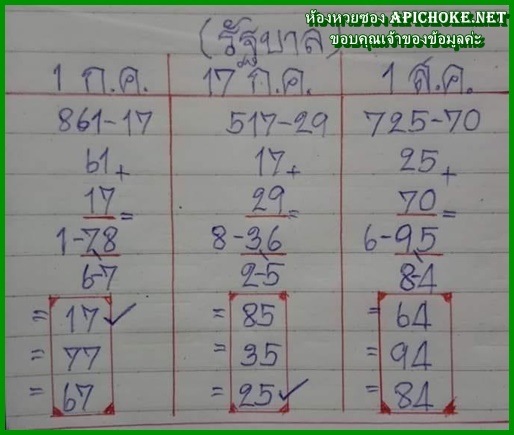 ห้องหวยซอง APICHOKE.NET
ขอบคุณเจ้าของข้อมูลค่ะ
(รัฐบาล)
1 ก.ค. 17 ก.ค. 1 ส.ค.
861-17 517-29 725-70
61+ 17+ 25+
17= 29= 70=
1-78 8-36 6-95
6-7 2-5 8-4
=17✓ =85 =64
=77 =35 =94
=67 =25✓ =84